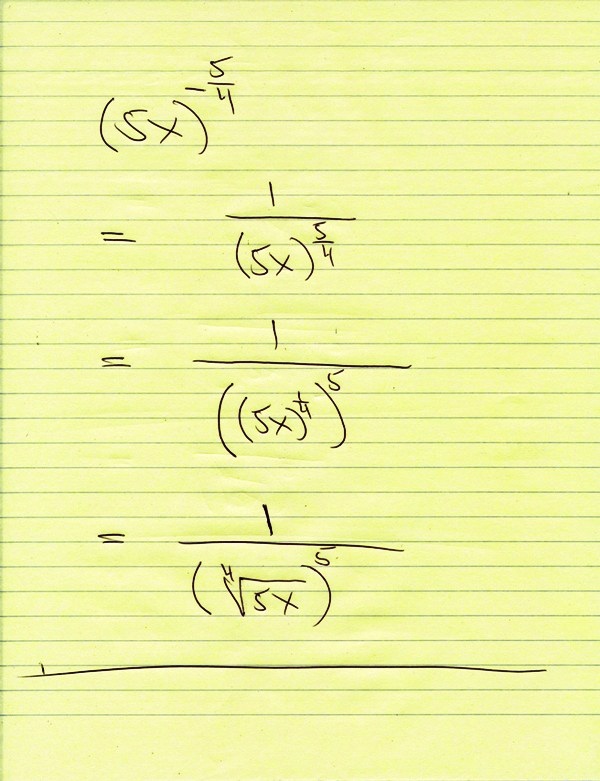 (5x)^{-\frac{5}{4}}
= \frac{1}{(5x)^{\frac{5}{4}}}
= \frac{1}{((5x)^{\frac{1}{4}})^5}
= \frac{1}{(\sqrt[4]{5x})^5}